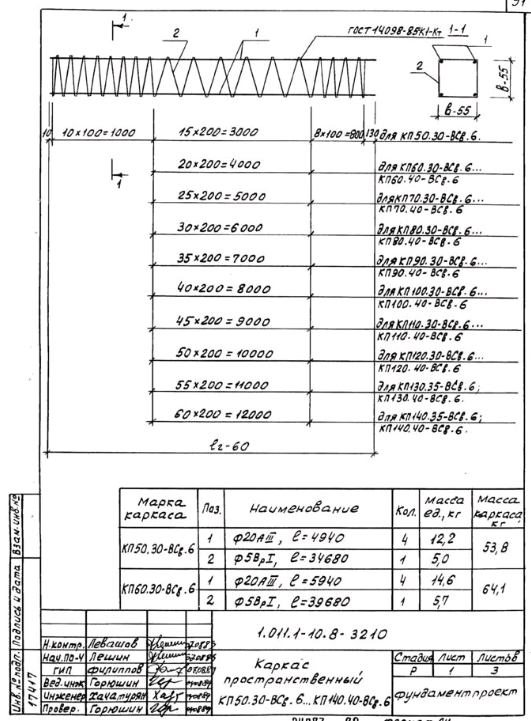 1
2
1
ГОСТ 14098-85К1-Кт
1-1
1
2
в-55
в-55
10
10×100=1000
15×200=3000
8×100=800
130
для КП50.30-ВСв.6.
1
20×200=4000
для КП60.30-ВСв.6...
КП60.40-ВСв.6
25×200=5000
для КП70.30-ВСв.6...
КП70.40-ВСв.6
30×200=6000
для КП80.30-ВСв.6...
КП80.40-ВСв.6
35×200=7000
для КП90.30-ВСв.6...
КП90.40-ВСв.6
40×200=8000
для КП100.30-ВСв.6...
КП100.40-ВСв.6
45×200=9000
для КП110.30-ВСв.6...
КП110.40-ВСв.6
50×200=10000
для КП120.30-ВСв.6...
КП120.40-ВСв.6
55×200=11000
для КП130.35-ВСв.6;
КП130.40-ВСв.6.
60×200=12000
для КП140.35-ВСв.6;
КП140.40-ВСв.6.
ℓг-60
Марка каркаса Поз. Наименование Кол. Масса ед., кг Масса каркаса кг
КП50.30-ВСв.6 1 Ф20АIII, ℓ=4940 4 12,2 53,8
2 Ф5ВрI, ℓ=34680 1 5,0
КП60.30-ВСв.6 1 Ф20АIII, ℓ=5940 4 14,6 64,1
2 Ф5ВрI, ℓ=39680 1 5,7
1.011.1-10.8-3210
Н.контр. Левашов
Нач.ПО-4 Лешин
ГИП Филиппов
Вед.инж Горюшин
Инженер Хачатурян
Провер. Горюшин
Каркас
пространственный
КП50.30-ВСв.6...КП140.40-ВСв.6
Стадия Лист Листов
Р 1 3
Фундаментпроект
Инв.№подл. Подпись и дата Взам.инв.№
17417